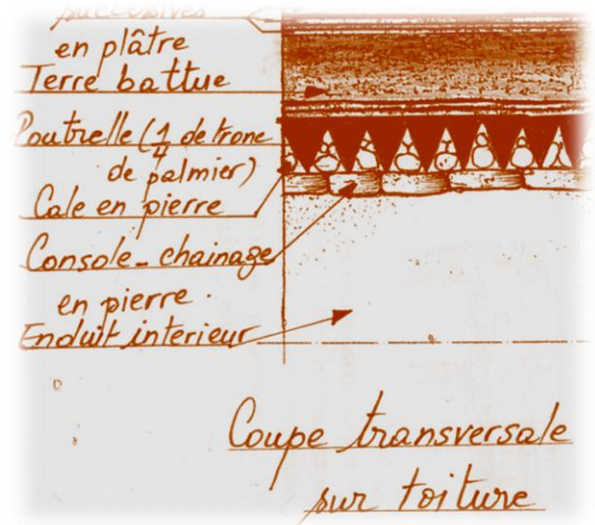 successives
en plâtre
Terre battue
Poutrelle (1/4 de tronc
de palmier)
Cale en pierre
Console-chainage
en pierre.
Enduit interieur
Coupe transversale
sur toiture